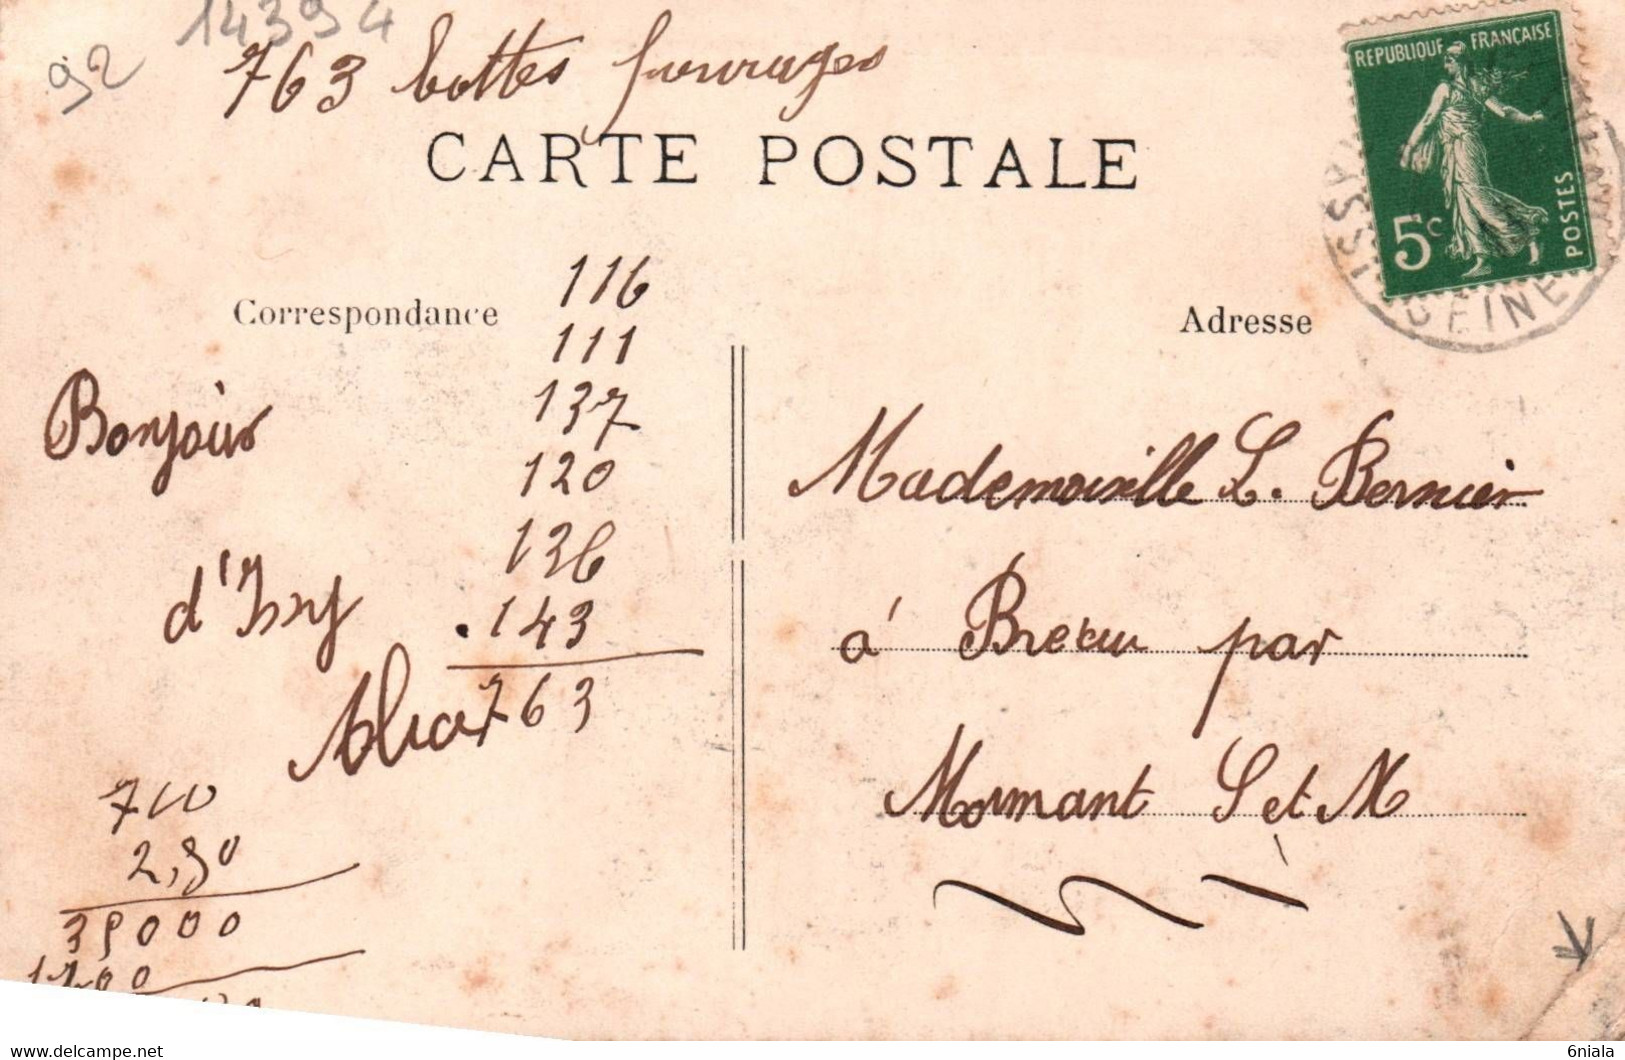 92
14394
763 bottes fourrages
CARTE POSTALE
REPUBLIQUE FRANÇAISE
5c
POSTES
ISSY
SEINE
Correspondance
Adresse
116
111
137
120
136
143
763
Bonjour
d'Issy
Alice
Mademoiselle L. Bernier
à Breau par
Mormant S et M
700
2,50
35000
1400
6niala
delcampe.net